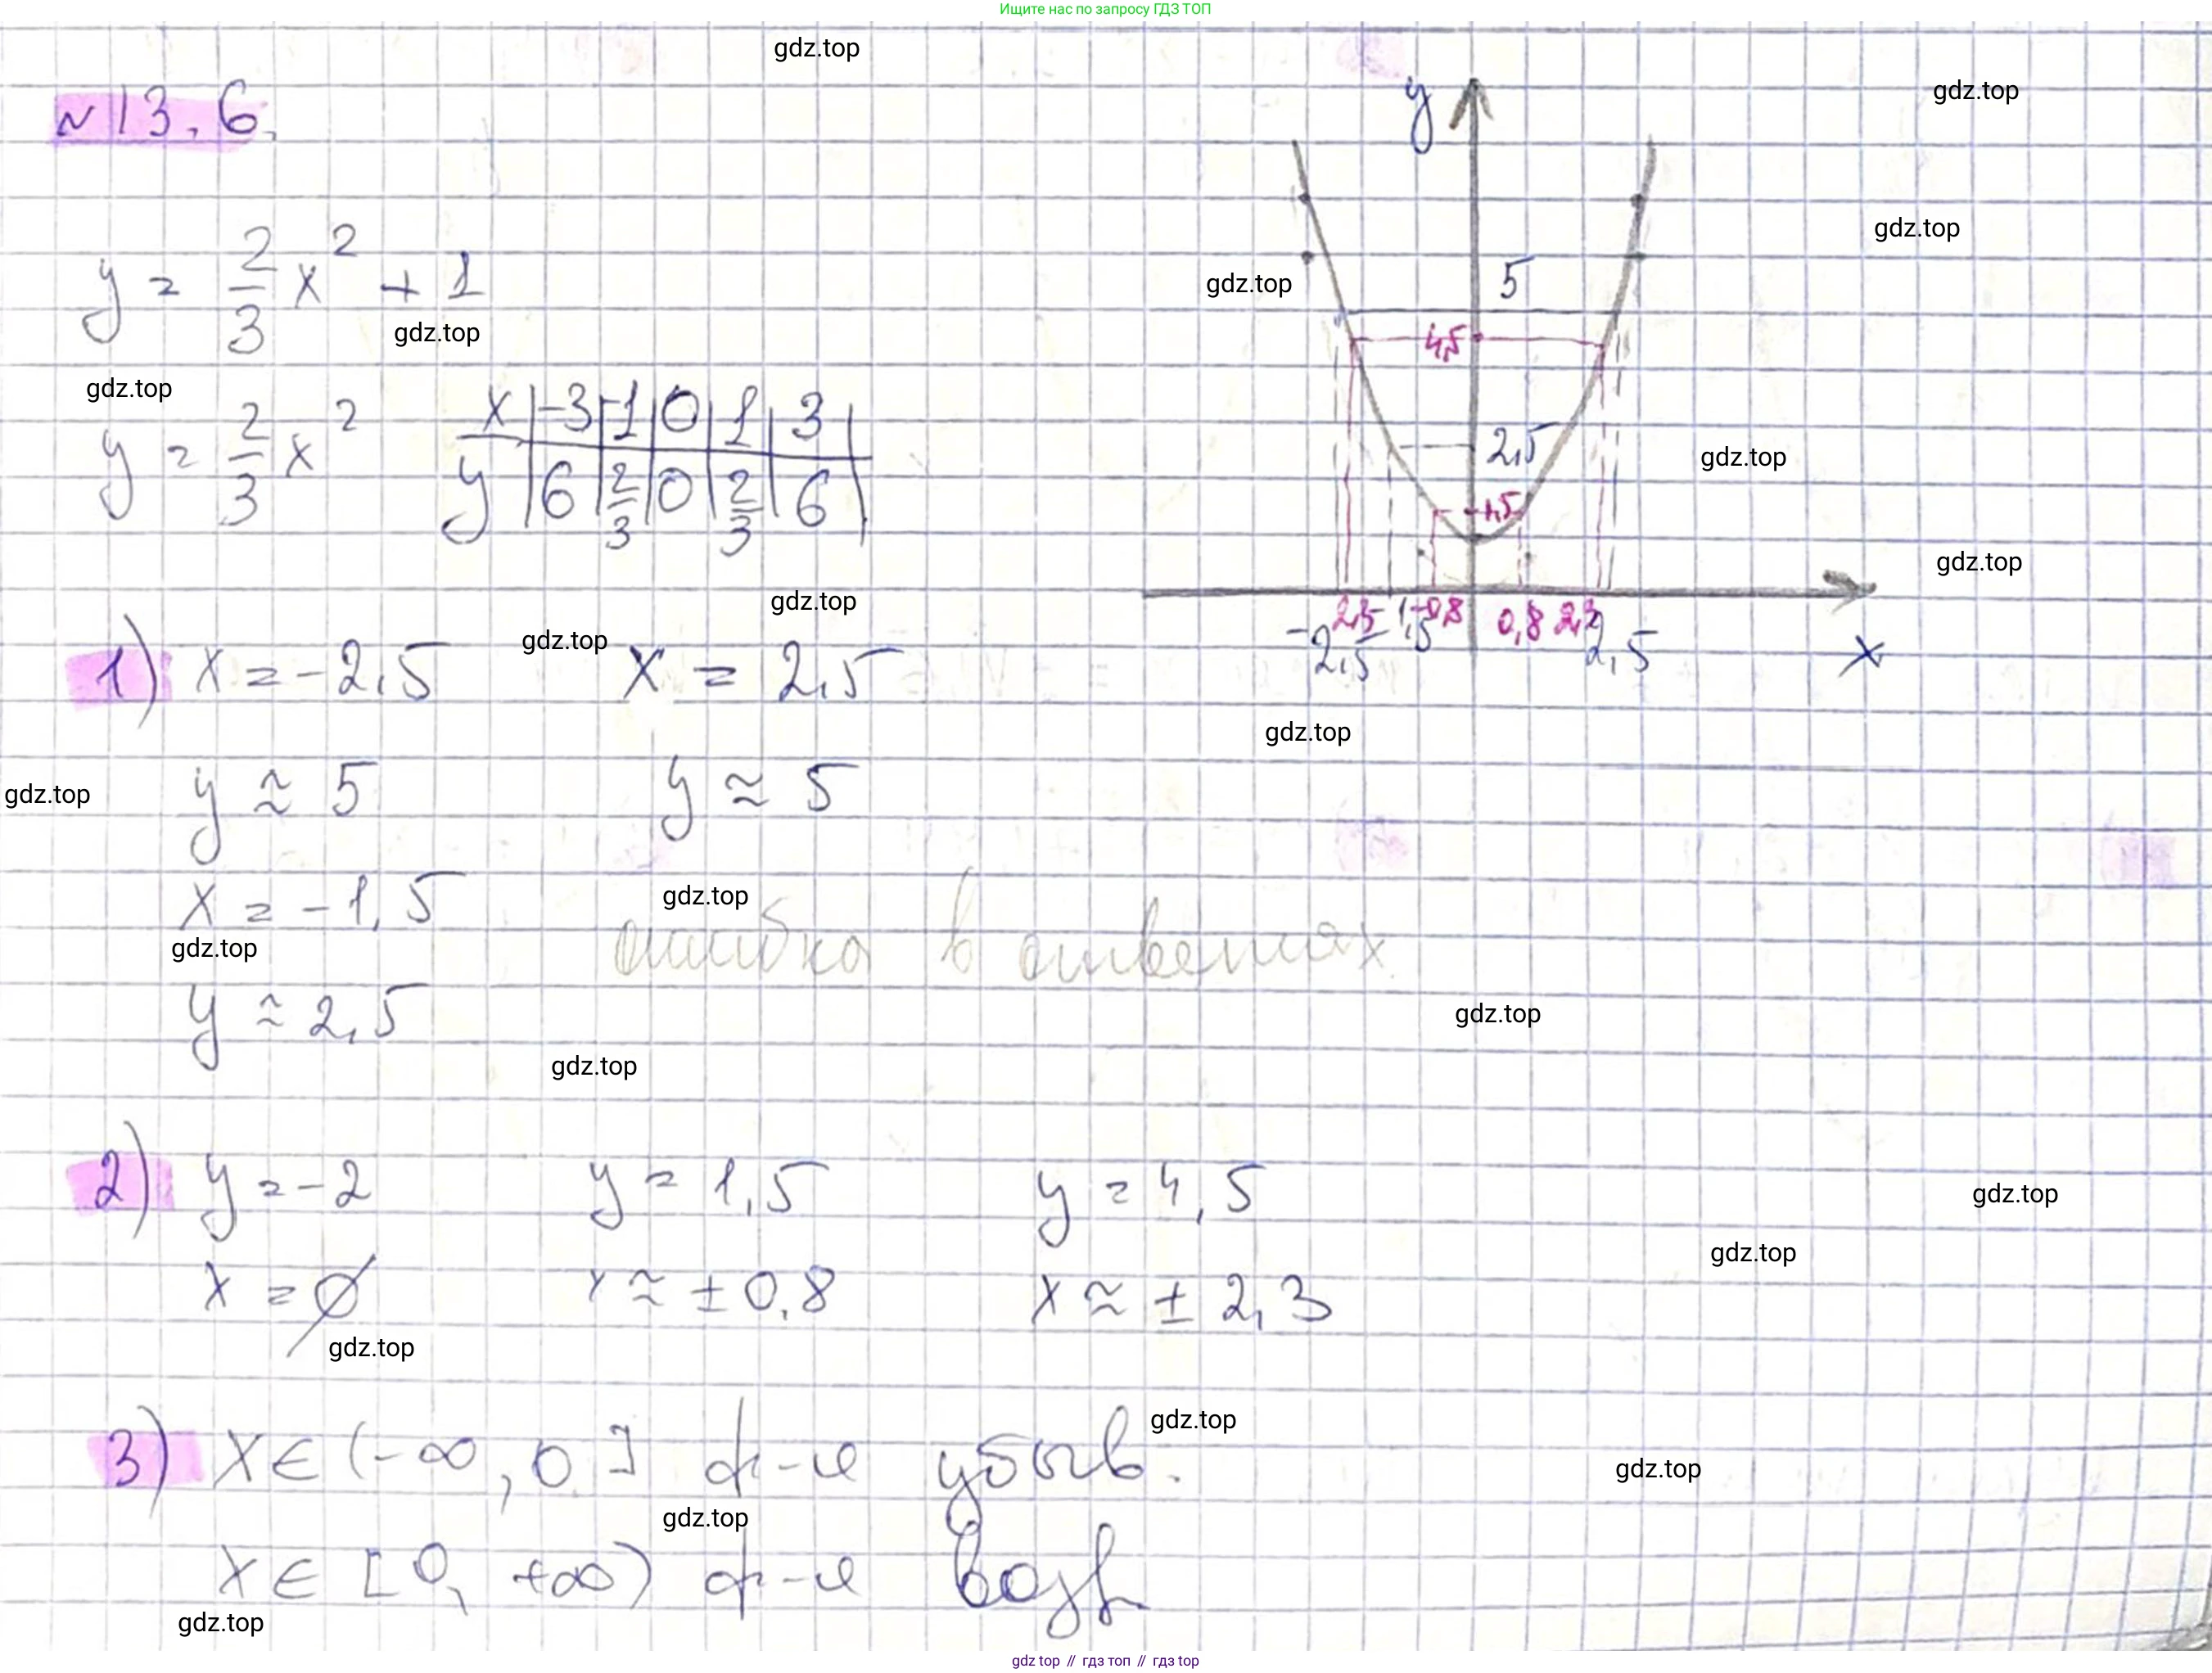 Ищите нас по запросу ГДЗ ТОП
gdz.top
№13.6.
gdz.top
y = 2/3 x² + 1
gdz.top
gdz.top
y = 2/3 x²
x | -3 | -1 | 0 | 1 | 3
y | 6 | 2/3 | 0 | 2/3 | 6
y
gdz.top
gdz.top
5
4,5
2,5
gdz.top
1,5
gdz.top
-2,5 2,3 -1,5 -0,8 0,8 2,3 2,5
x
gdz.top
gdz.top
1) x = -2,5 x = 2,5
gdz.top
gdz.top
y ≈ 5 y ≈ 5
x = -1,5
gdz.top
gdz.top
ошибка в ответах
y ≈ 2,5
gdz.top
gdz.top
2) y = -2 y = 1,5 y = 4,5
gdz.top
gdz.top
x = ∅ x ≈ ± 0,8 x ≈ ± 2,3
gdz.top
3) x ∈ (-∞, 0] ф-я убыв.
gdz.top
gdz.top
gdz.top
x ∈ [0, +∞) ф-я возр
gdz.top
gdz top // гдз топ // гдз top